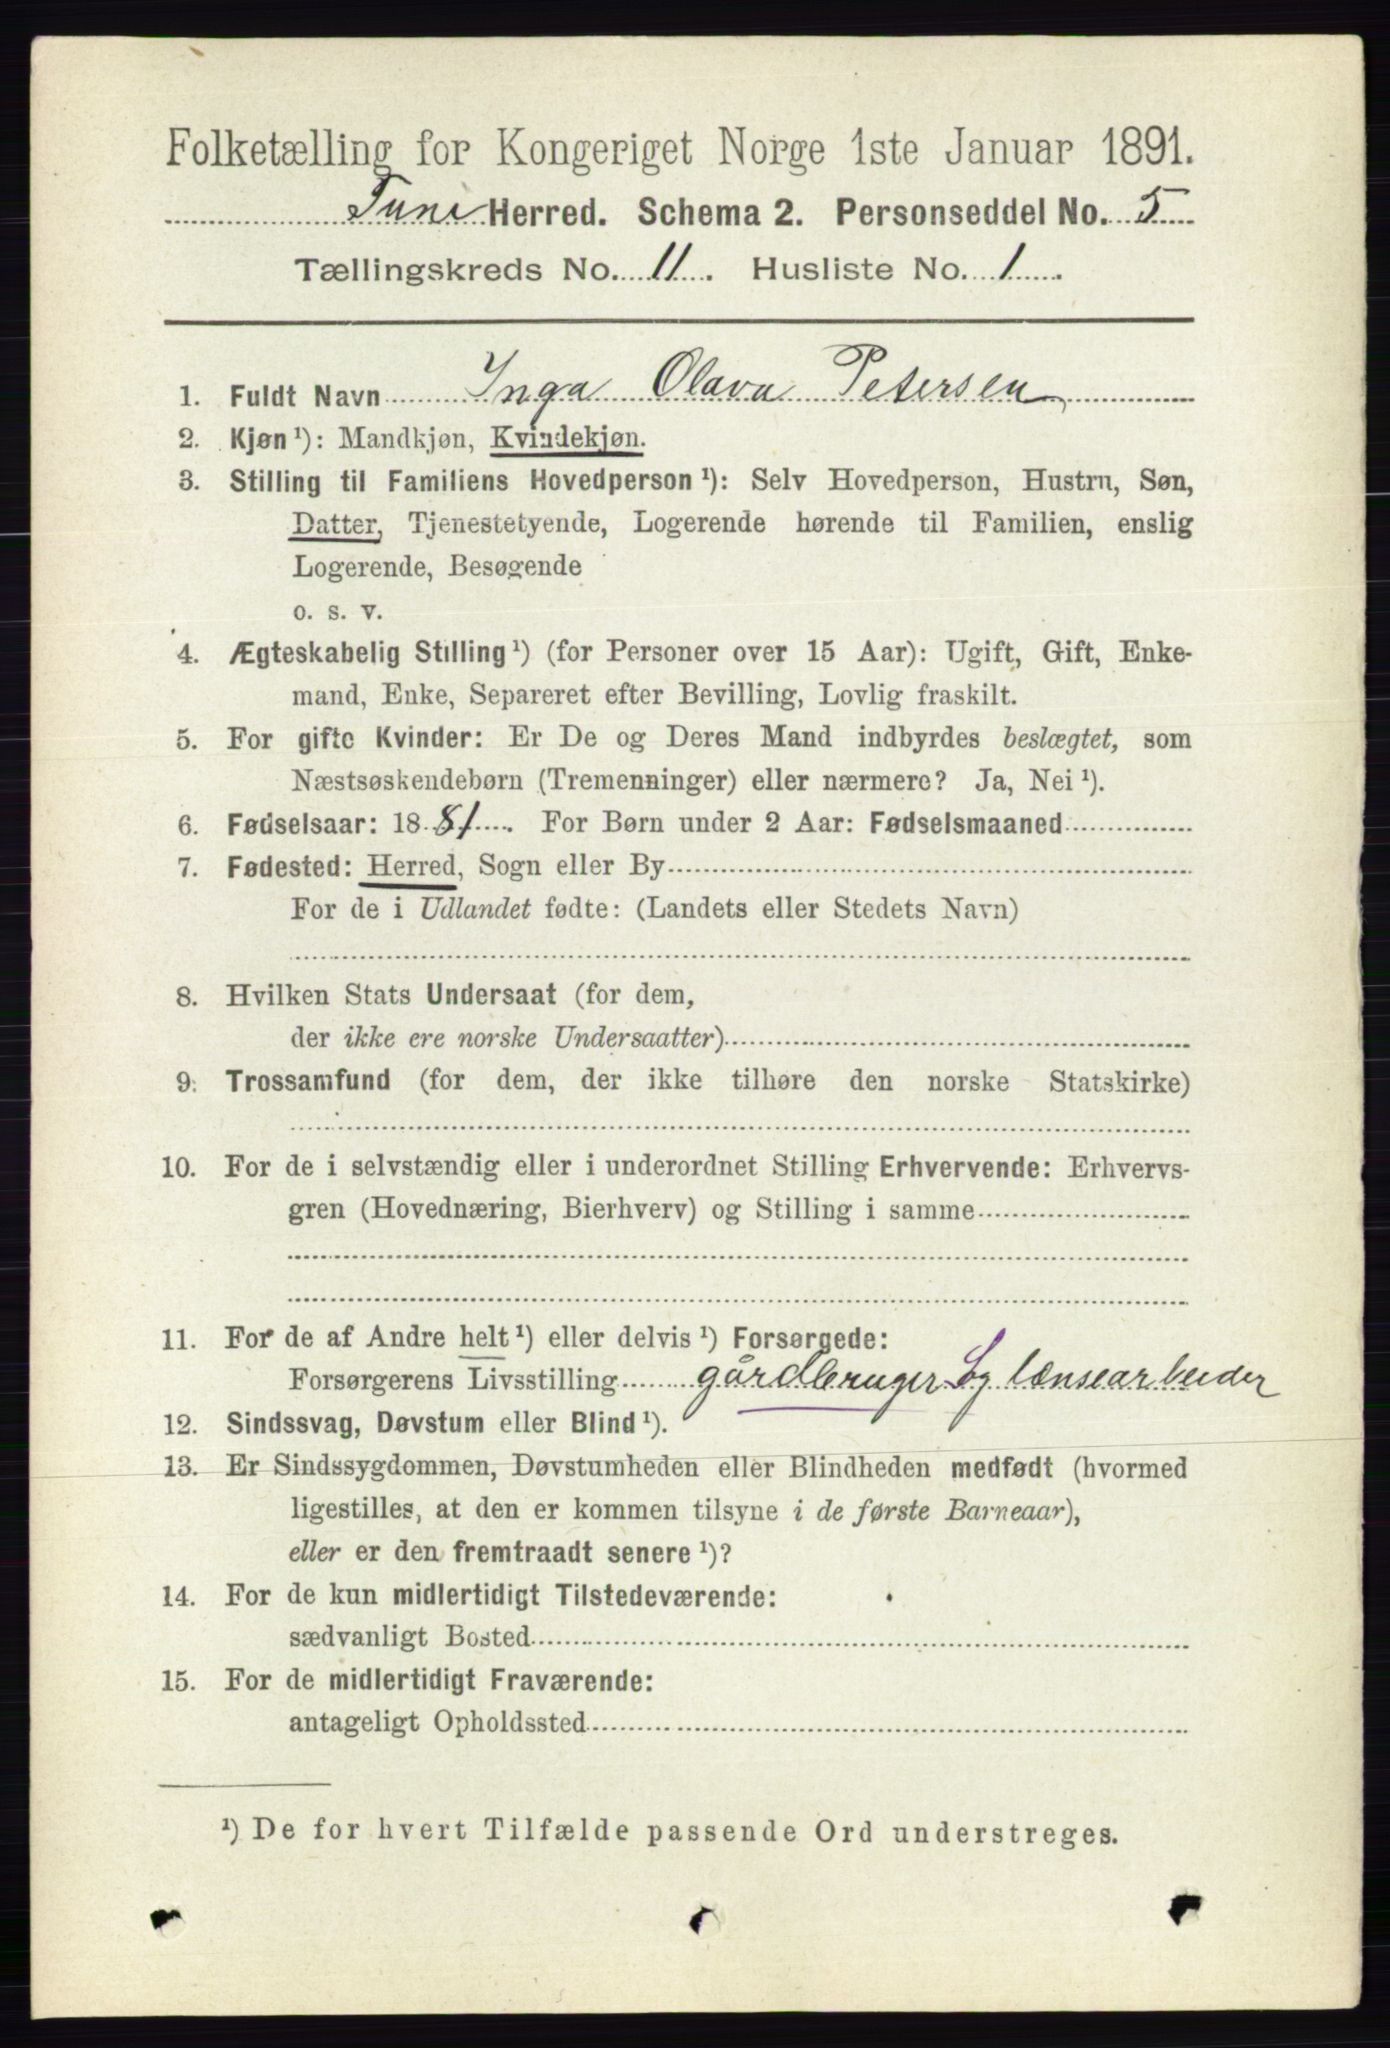 Folketælling for Kongeriget Norge 1ste Januar 1891.
Tune Herred. Schema 2. Personseddel No. 5
Tællingskreds No. 11. Husliste No. 1.
1. Fuldt Navn Inga Olava Petersen
2. Kjøn ¹): Mandkjøn, Kvindekjøn.
3. Stilling til Familiens Hovedperson ¹): Selv Hovedperson, Hustru, Søn,
Datter, Tjenestetyende, Logerende hørende til Familien, enslig
Logerende, Besøgende
o. s. v.
4. Ægteskabelig Stilling ¹) (for Personer over 15 Aar): Ugift, Gift, Enke-
mand, Enke, Separeret efter Bevilling, Lovlig fraskilt.
5. For gifte Kvinder: Er De og Deres Mand indbyrdes beslægtet, som
Næstsøskendebørn (Tremenninger) eller nærmere? Ja, Nei ¹).
6. Fødselsaar: 1881. For Børn under 2 Aar: Fødselsmaaned
7. Fødested: Herred, Sogn eller By
For de i Udlandet fødte: (Landets eller Stedets Navn)
8. Hvilken Stats Undersaat (for dem,
der ikke ere norske Undersaatter)
9. Trossamfund (for dem, der ikke tilhøre den norske Statskirke)
10. For de i selvstændig eller i underordnet Stilling Erhvervende: Erhvervs-
gren (Hovednæring, Bierhverv) og Stilling i samme
11. For de af Andre helt ¹) eller delvis ¹) Forsørgede:
Forsørgerens Livsstilling gårdbruger og lænsearbeider
12. Sindssvag, Døvstum eller Blind ¹).
13. Er Sindssygdommen, Døvstumheden eller Blindheden medfødt (hvormed
ligestilles, at den er kommen tilsyne i de første Barneaar),
eller er den fremtraadt senere ¹)?
14. For de kun midlertidigt Tilstedeværende:
sædvanligt Bosted
15. For de midlertidigt Fraværende:
antageligt Opholdssted
¹) De for hvert Tilfælde passende Ord understreges.